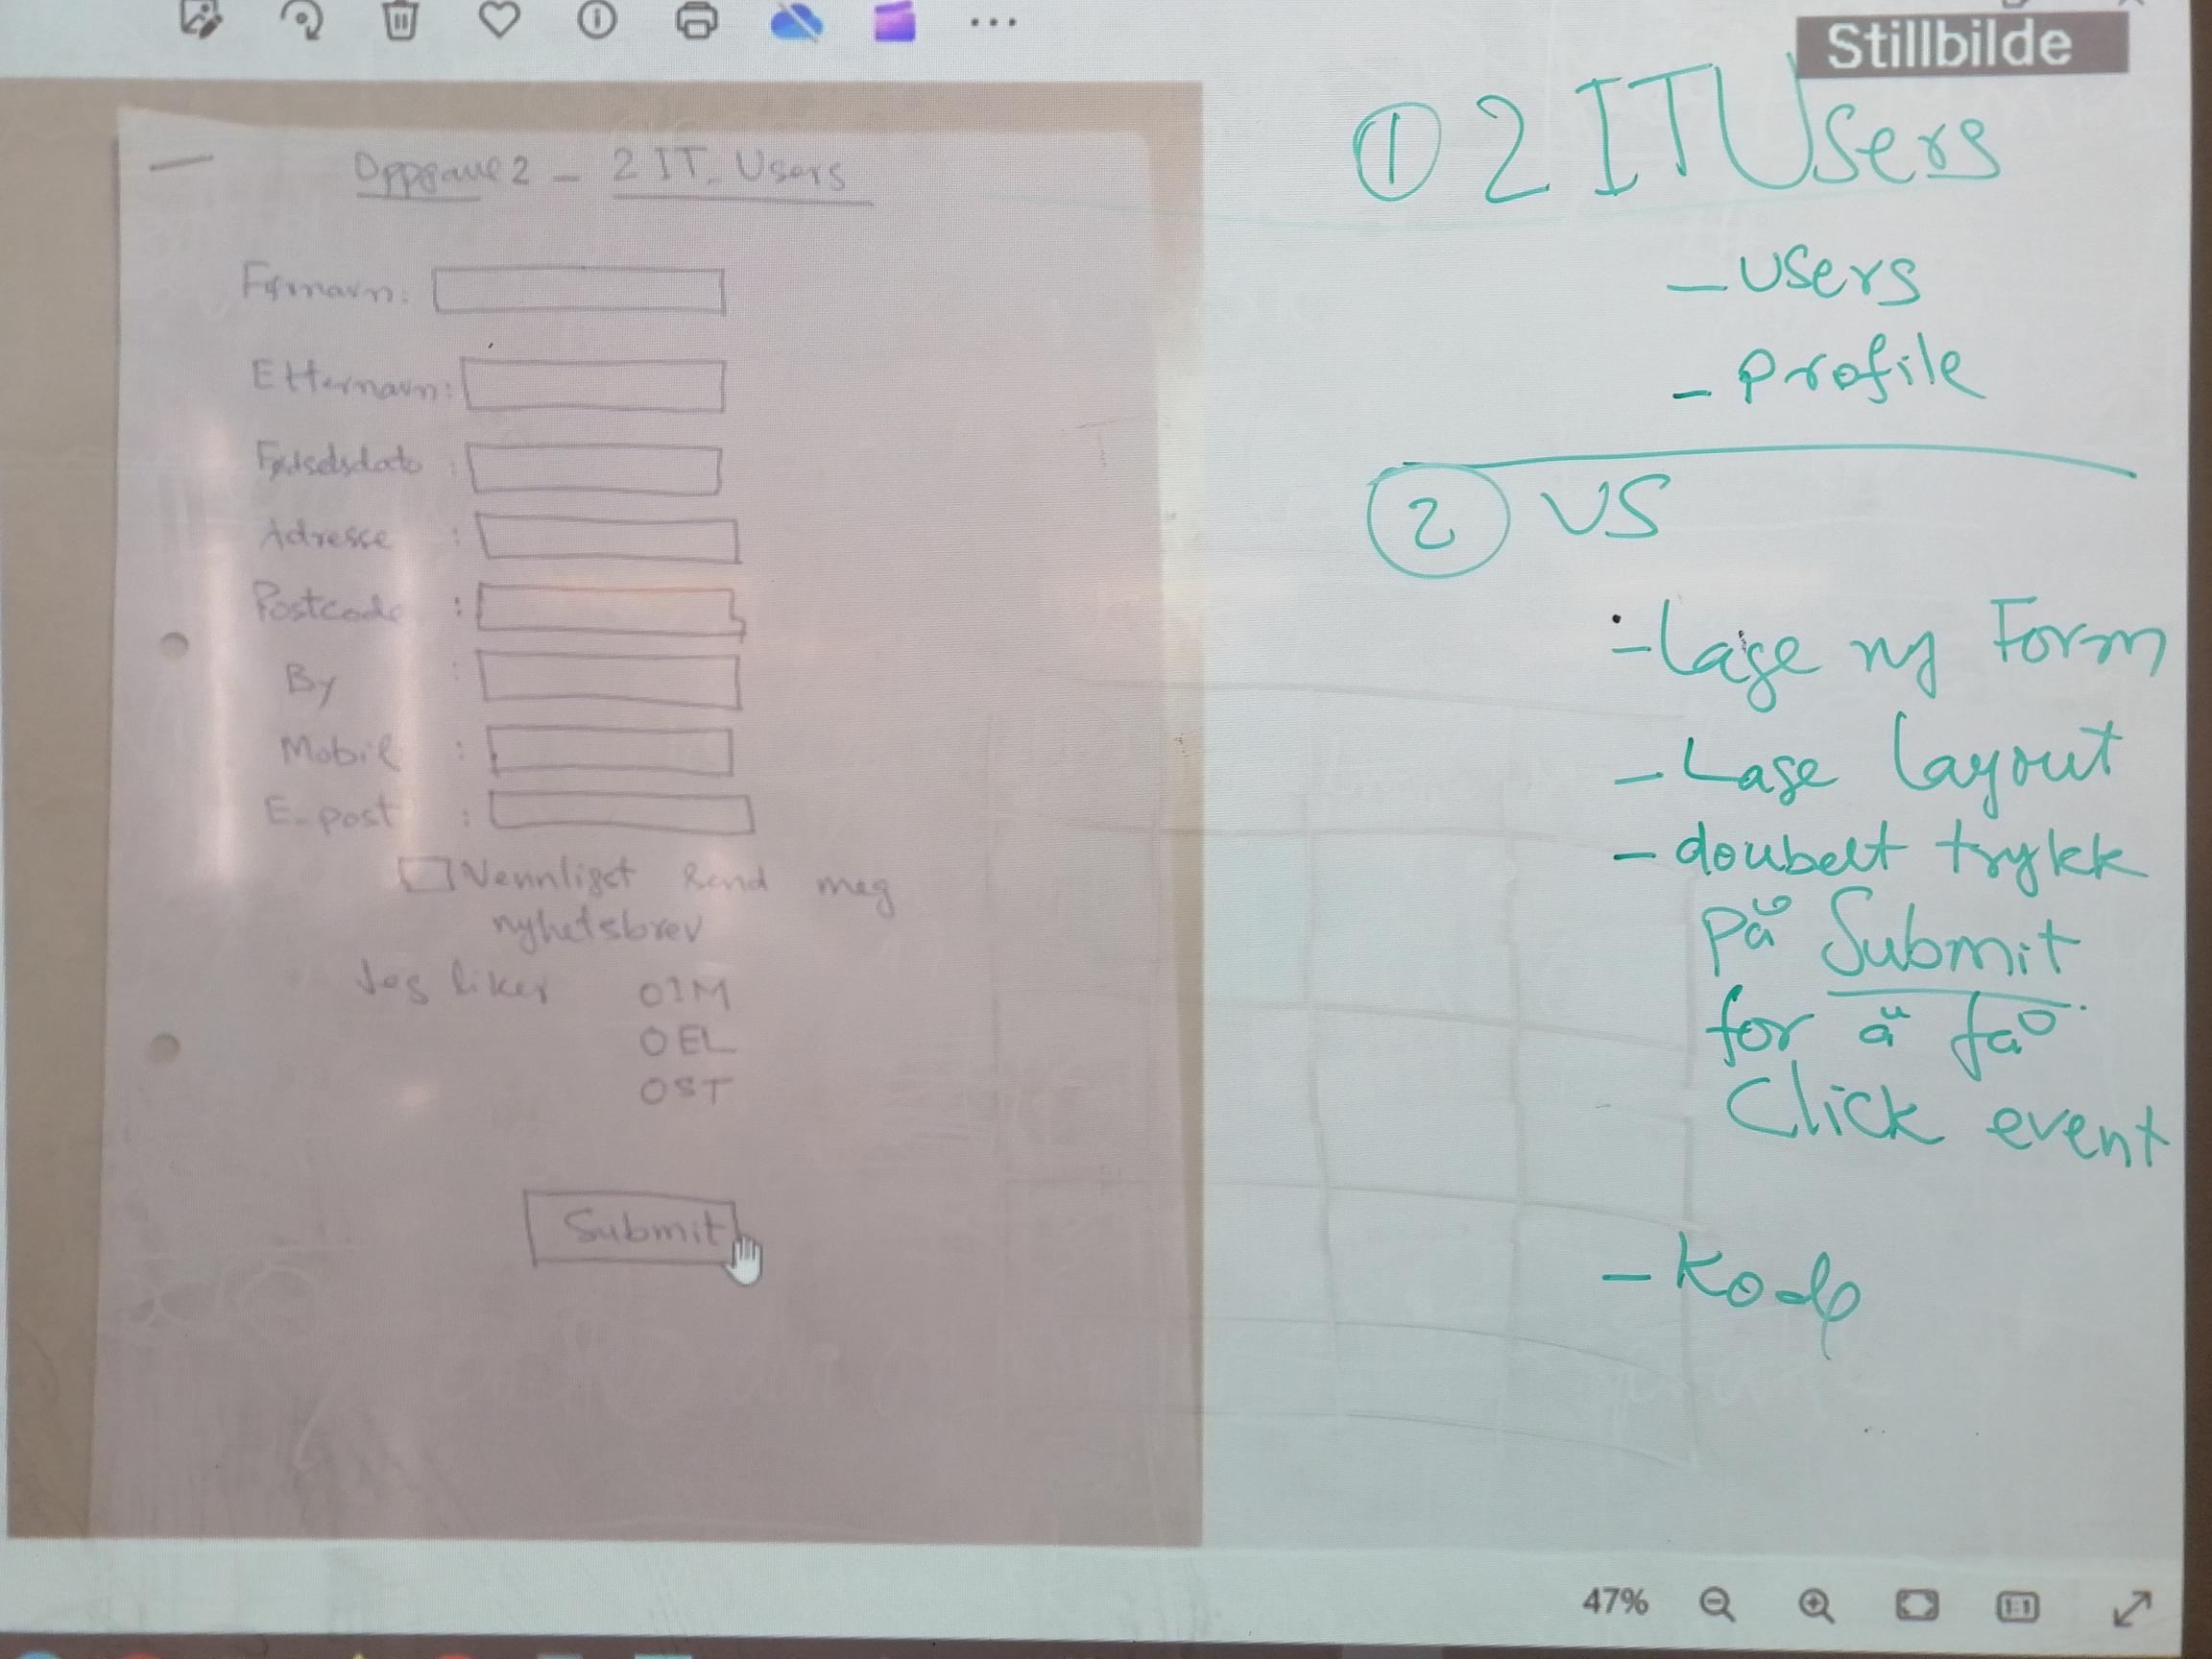 Stillbilde
Oppgave 2 - 2 IT_Users
Fornavn:
Etternavn:
Fødselsdato :
Adresse :
Postcode :
By :
Mobil :
E-post :
Vennligst send meg
nyhetsbrev
Jeg liker O IM
O EL
O ST
Submit
① 2 IT Users
- Users
- Profile
② VS
- Lage ny Form
- Lage layout
- doubelt trykk
på Submit
for å få
Click event
- Kode
47%
1:1